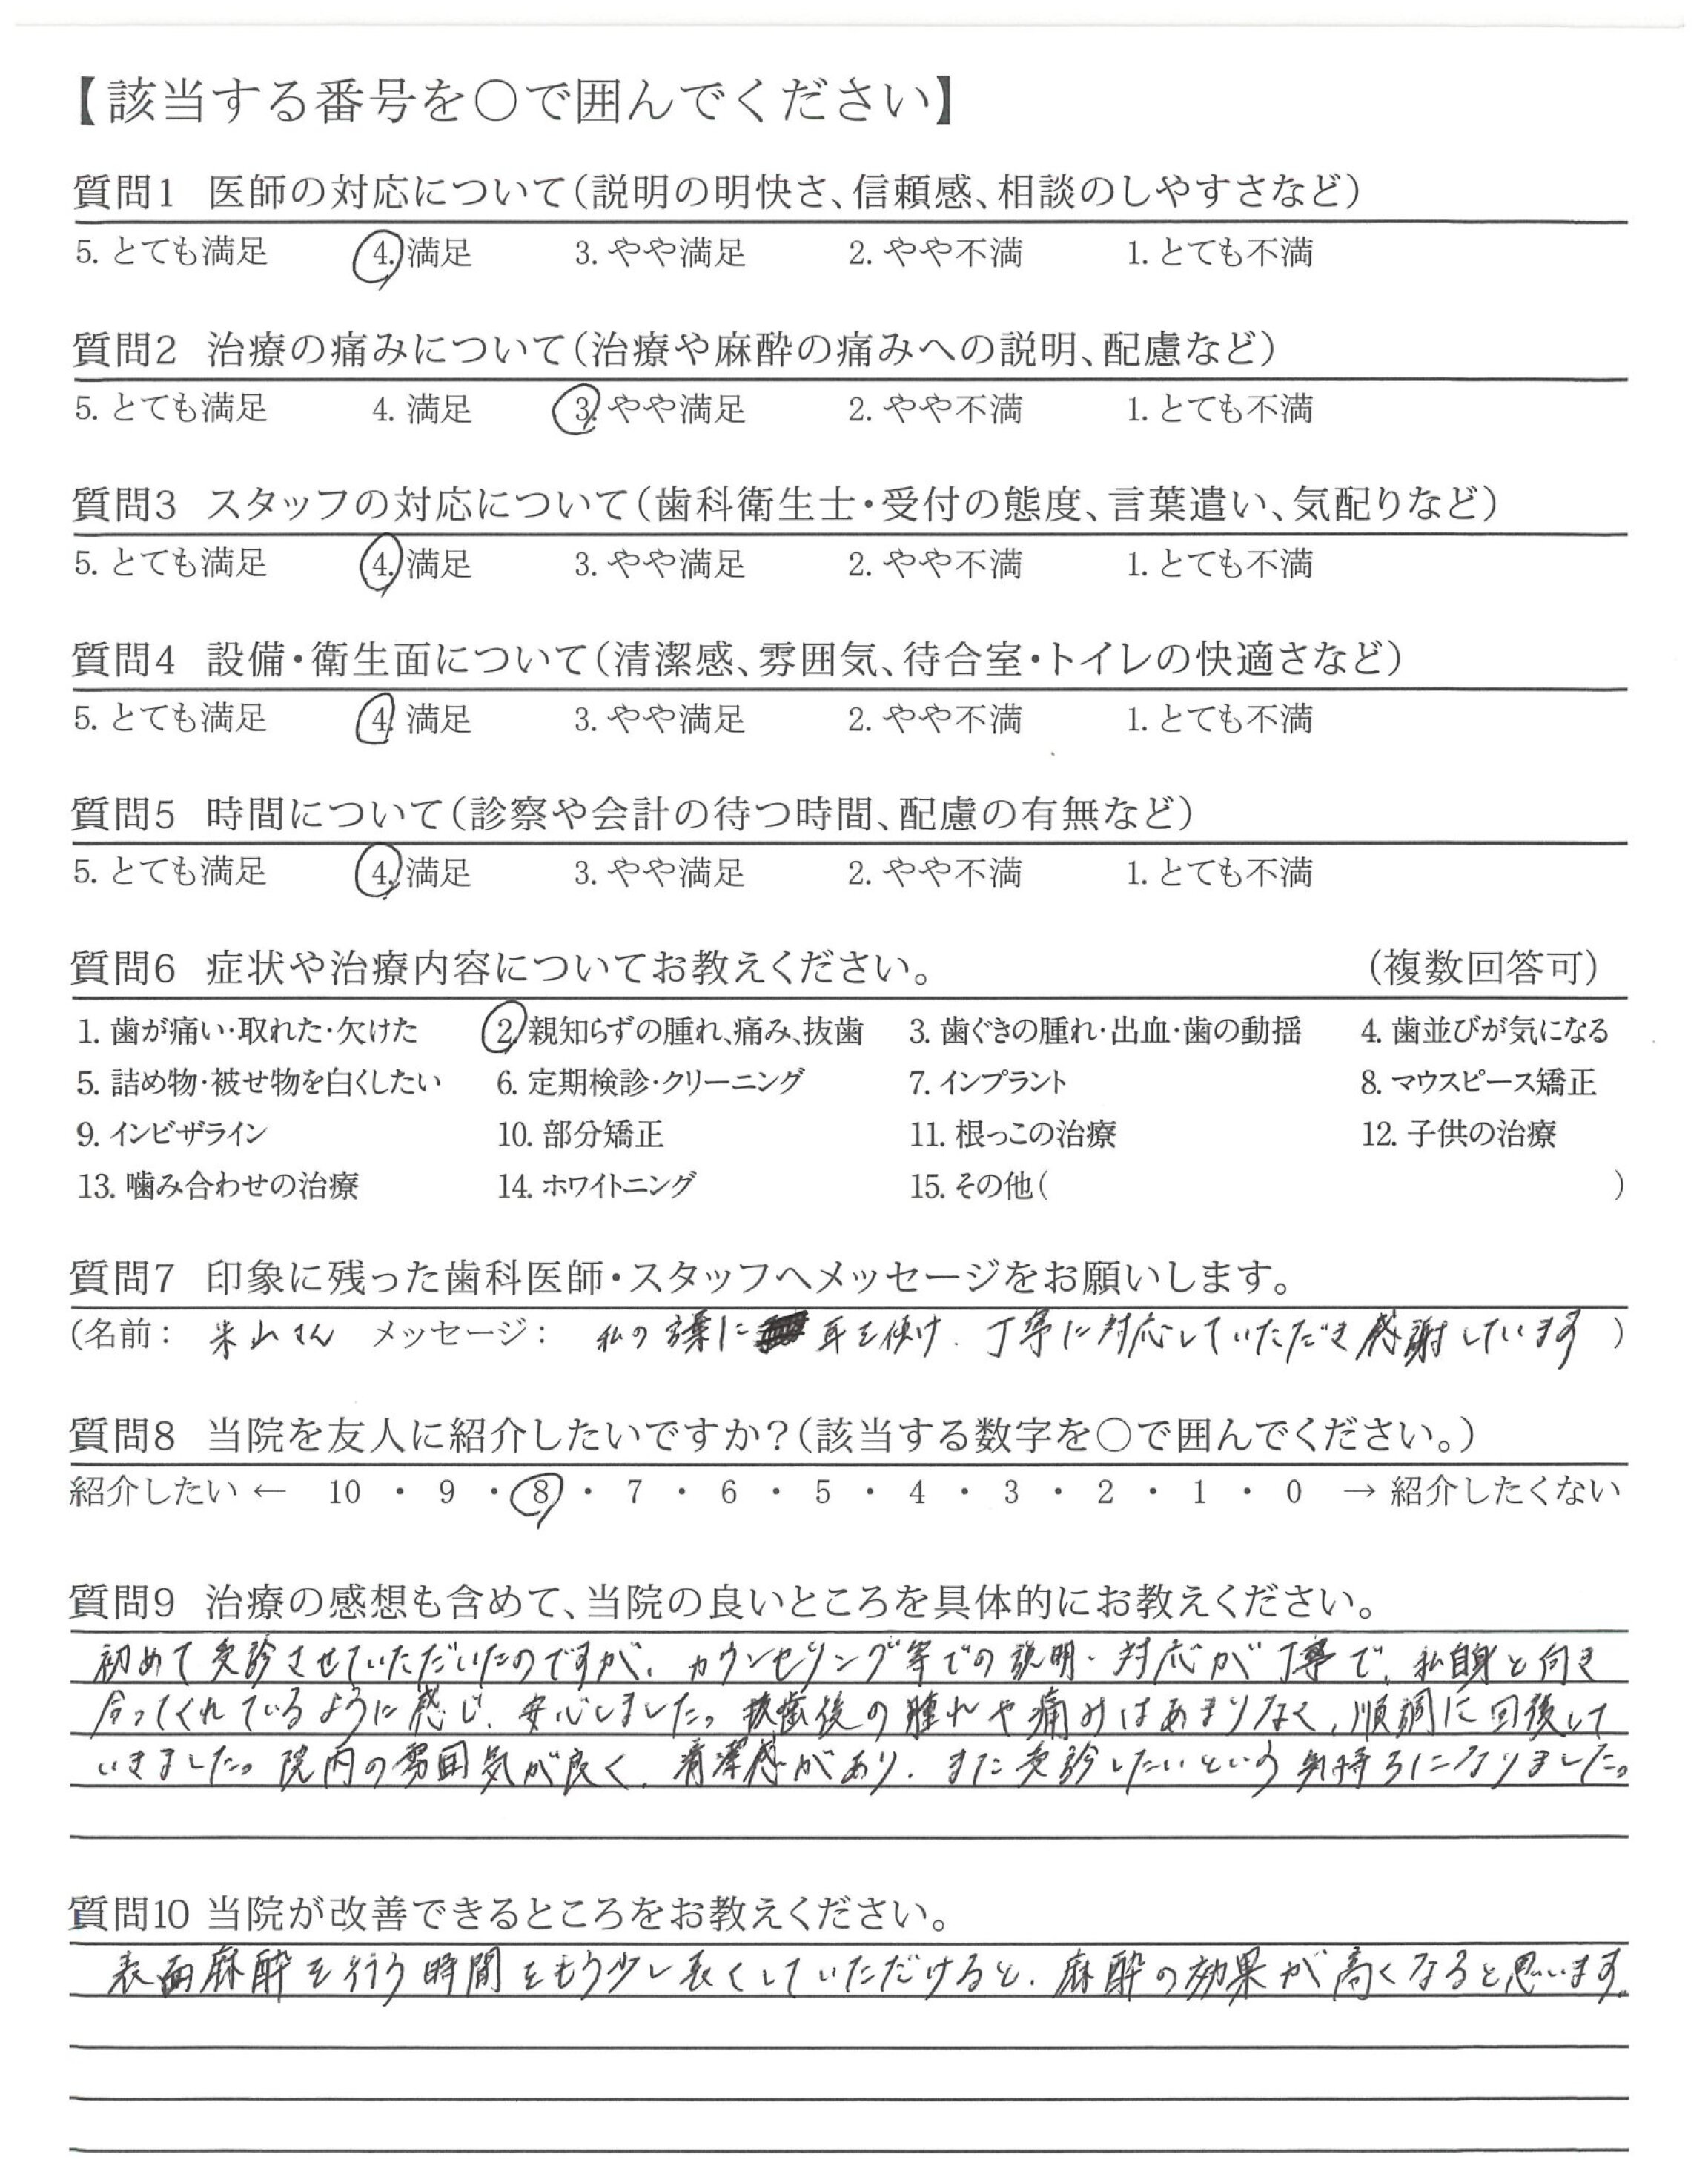 【該当する番号を〇で囲んでください】
質問1 医師の対応について(説明の明快さ、信頼感、相談のしやすさなど)
5. とても満足 4. 満足 3. やや満足 2. やや不満 1. とても不満
質問2 治療の痛みについて(治療や麻酔の痛みへの説明、配慮など)
5. とても満足 4. 満足 3. やや満足 2. やや不満 1. とても不満
質問3 スタッフの対応について(歯科衛生士・受付の態度、言葉遣い、気配りなど)
5. とても満足 4. 満足 3. やや満足 2. やや不満 1. とても不満
質問4 設備・衛生面について(清潔感、雰囲気、待合室・トイレの快適さなど)
5. とても満足 4. 満足 3. やや満足 2. やや不満 1. とても不満
質問5 時間について(診察や会計の待つ時間、配慮の有無など)
5. とても満足 4. 満足 3. やや満足 2. やや不満 1. とても不満
質問6 症状や治療内容についてお教えください。 (複数回答可)
1. 歯が痛い・取れた・欠けた 2. 親知らずの腫れ、痛み、抜歯 3. 歯ぐきの腫れ・出血・歯の動揺 4. 歯並びが気になる
5. 詰め物・被せ物を白くしたい 6. 定期検診・クリーニング 7. インプラント 8. マウスピース矯正
9. インビザライン 10. 部分矯正 11. 根っこの治療 12. 子供の治療
13. 噛み合わせの治療 14. ホワイトニング 15. その他( )
質問7 印象に残った歯科医師・スタッフへメッセージをお願いします。
(名前: 米山さん メッセージ: 私の言葉に 耳を傾け、丁寧に対応していただき感謝しています )
質問8 当院を友人に紹介したいですか?(該当する数字を〇で囲んでください。)
紹介したい ← 10 ・ 9 ・ 8 ・ 7 ・ 6 ・ 5 ・ 4 ・ 3 ・ 2 ・ 1 ・ 0 → 紹介したくない
質問9 治療の感想も含めて、当院の良いところを具体的にお教えください。
初めて受診させていただいたのですが、カウンセリング等での説明・対応が丁寧で、私自身と向き
合ってくれているように感じ、安心しました。抜歯後の腫れや痛みはあまりなく、順調に回復して
いきました。院内の雰囲気が良く、清潔感があり、また受診したいという気持ちになりました。
質問10 当院が改善できるところをお教えください。
表面麻酔を行う時間をもう少し長くしていただけると、麻酔の効果が高くなると思います。